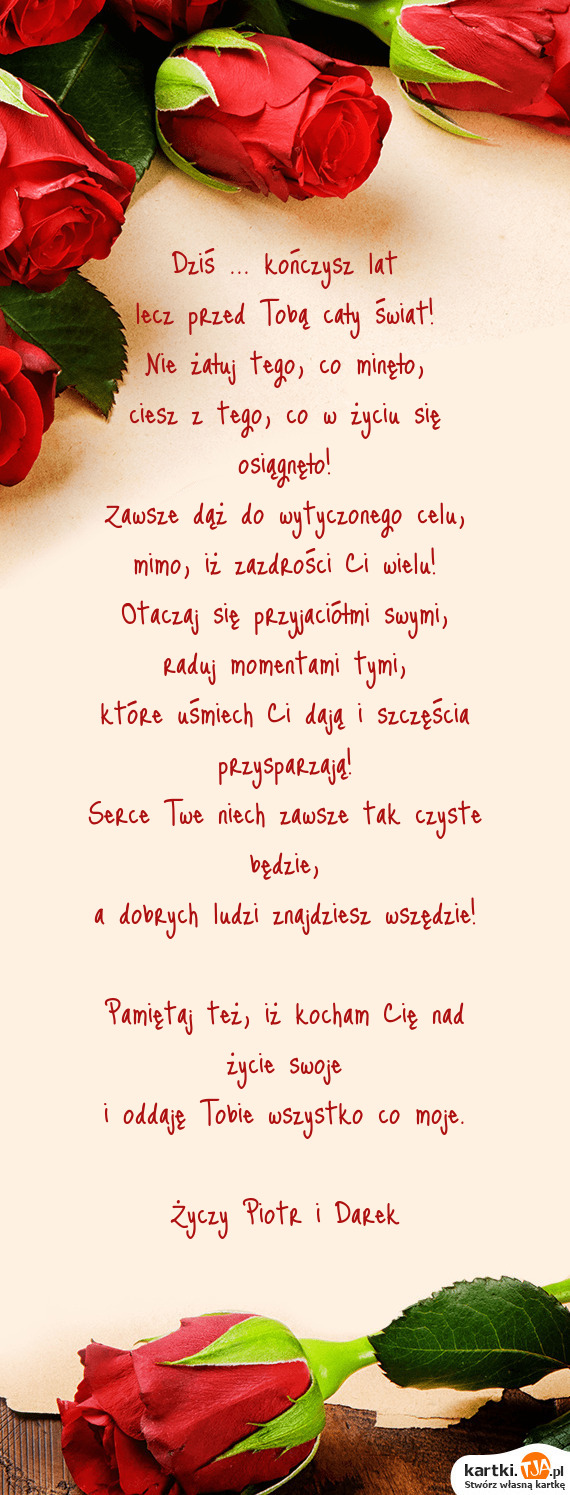 Dziś ... kończysz lat
lecz przed Tobą cały świat!
Nie żałuj tego, co minęło,
ciesz z tego, co w życiu się
osiągnęło!
Zawsze dąż do wytyczonego celu,
mimo, iż zazdrości Ci wielu!
Otaczaj się przyjaciółmi swymi,
raduj momentami tymi,
które uśmiech Ci dają i szczęścia
przysparzają!
Serce Twe niech zawsze tak czyste
będzie,
a dobrych ludzi znajdziesz wszędzie!
Pamiętaj też, iż kocham Cię nad
życie swoje
i oddaję Tobie wszystko co moje.
Życzy Piotr i Darek
kartki.TJA.pl
Stwórz własną kartkę